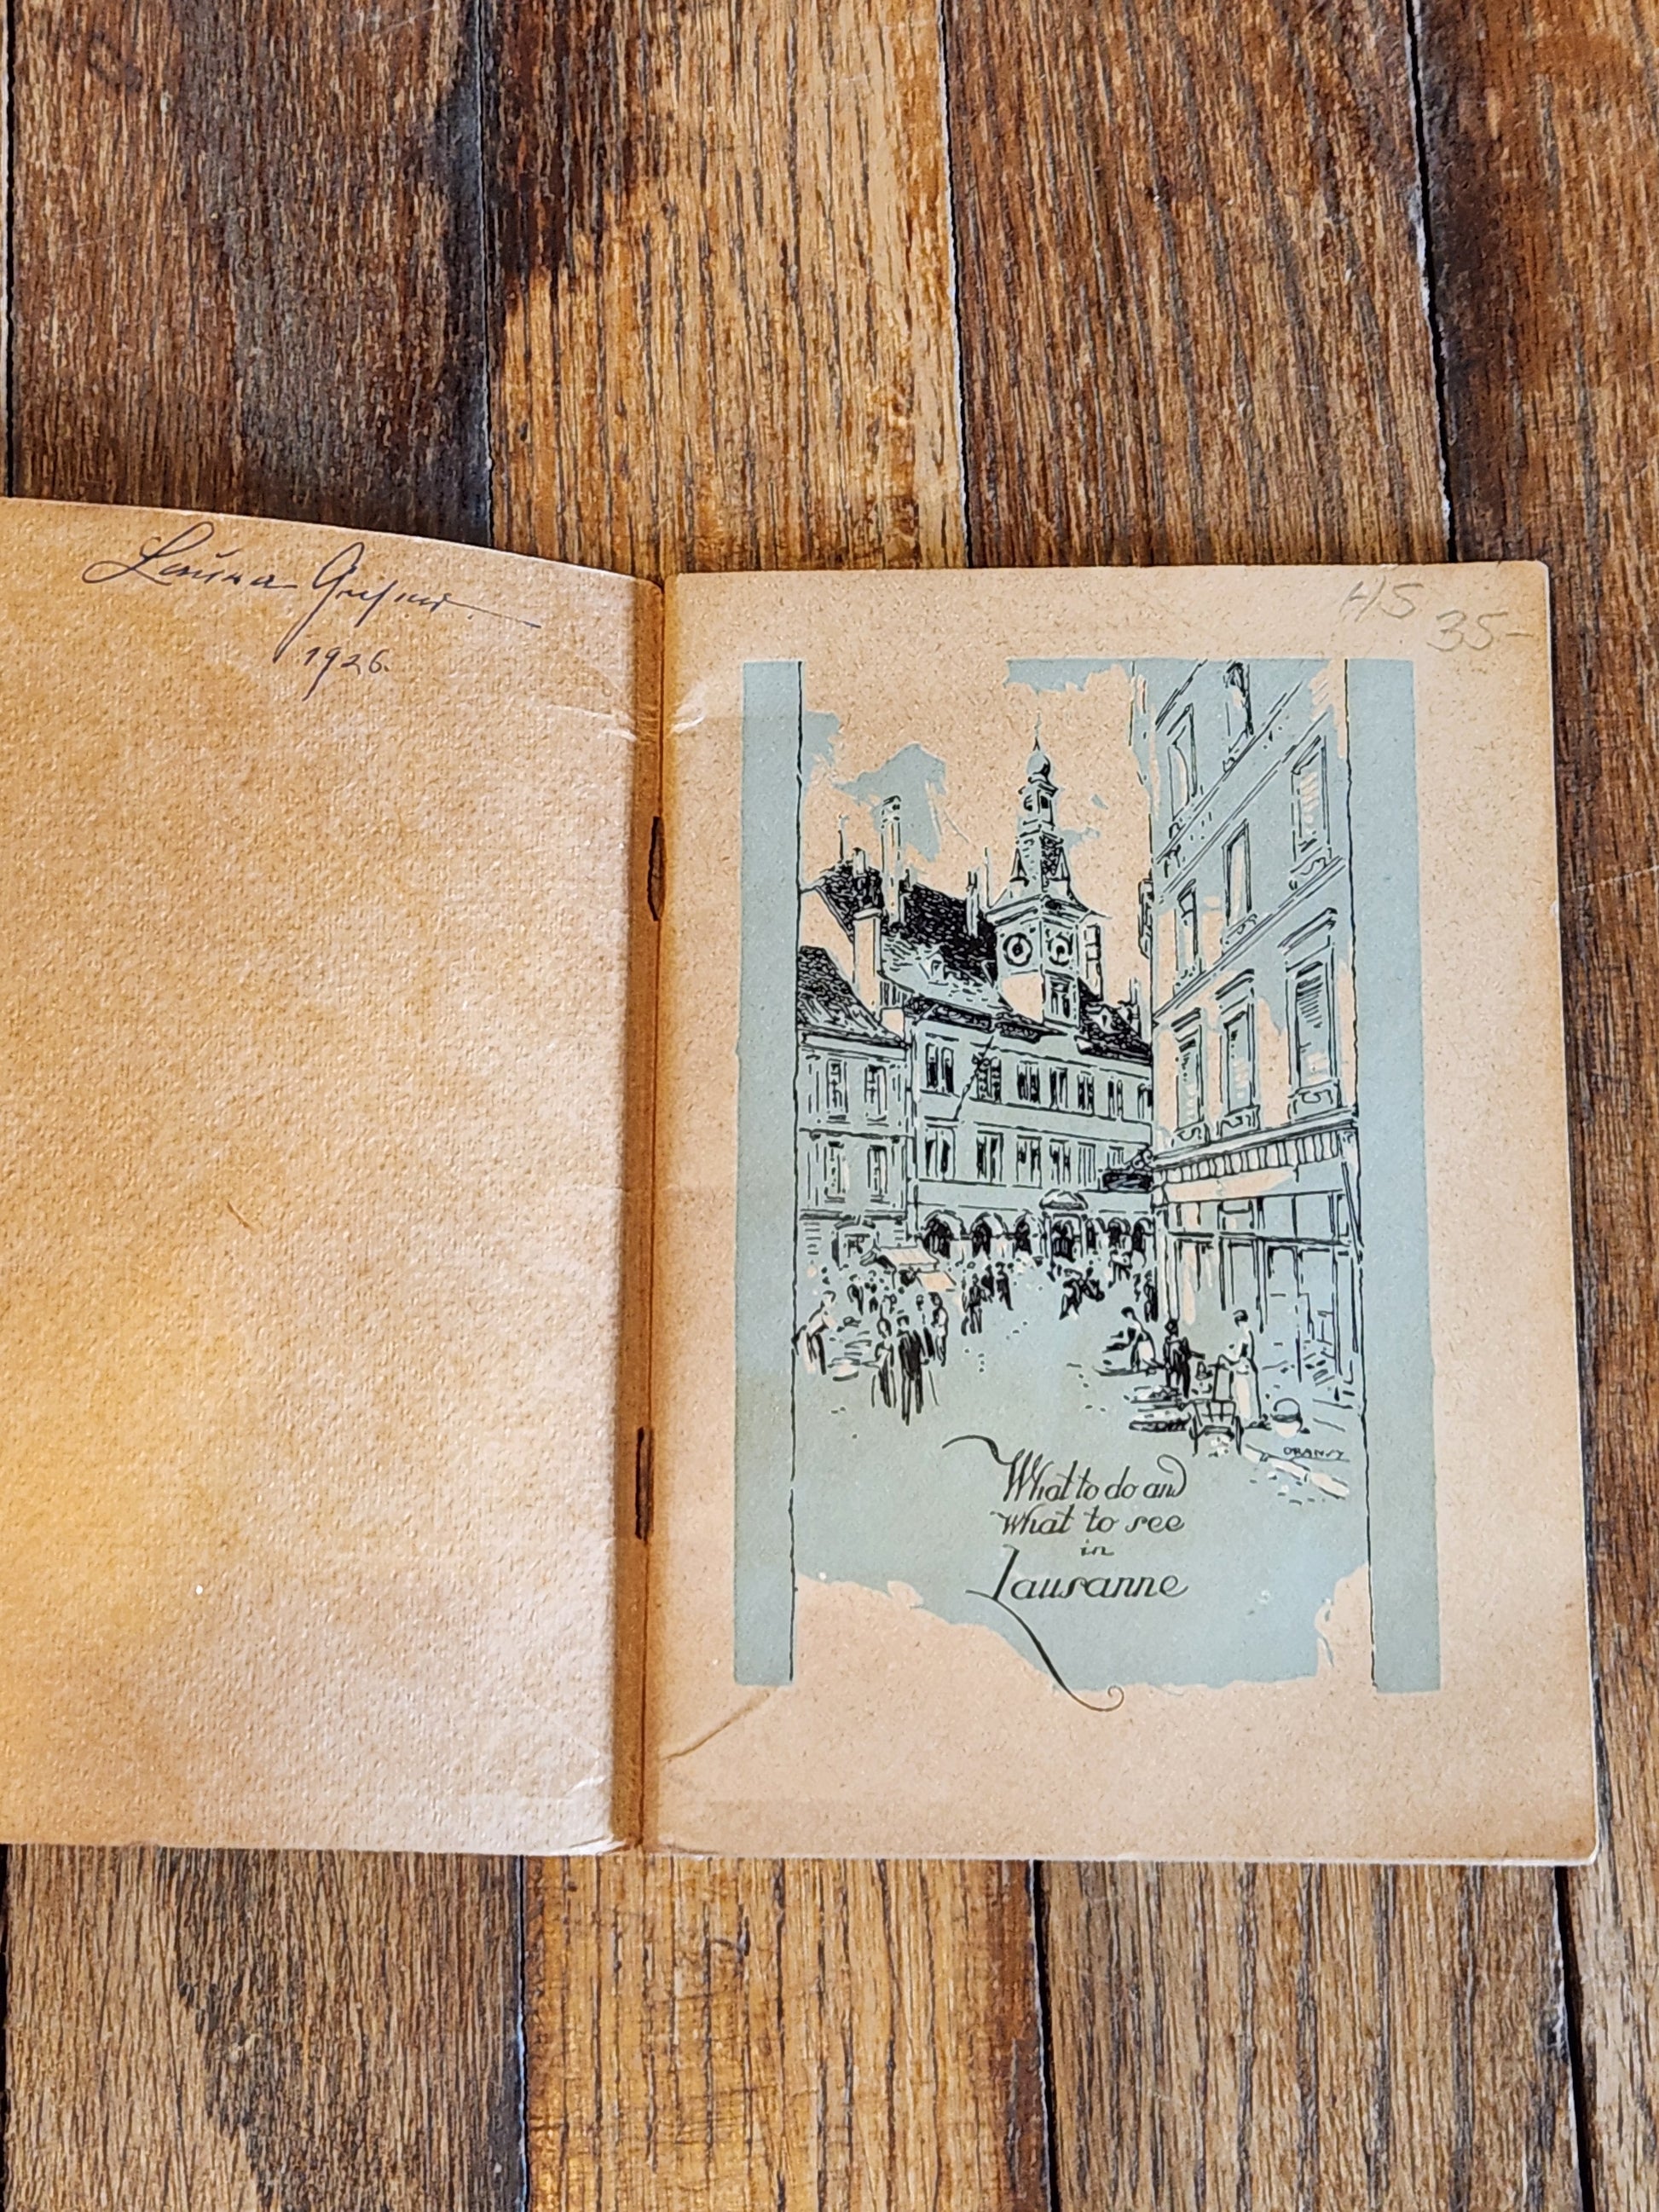 Laura
1926.
HS 35-
ORANSY
What to do and
what to see
in
Lausanne